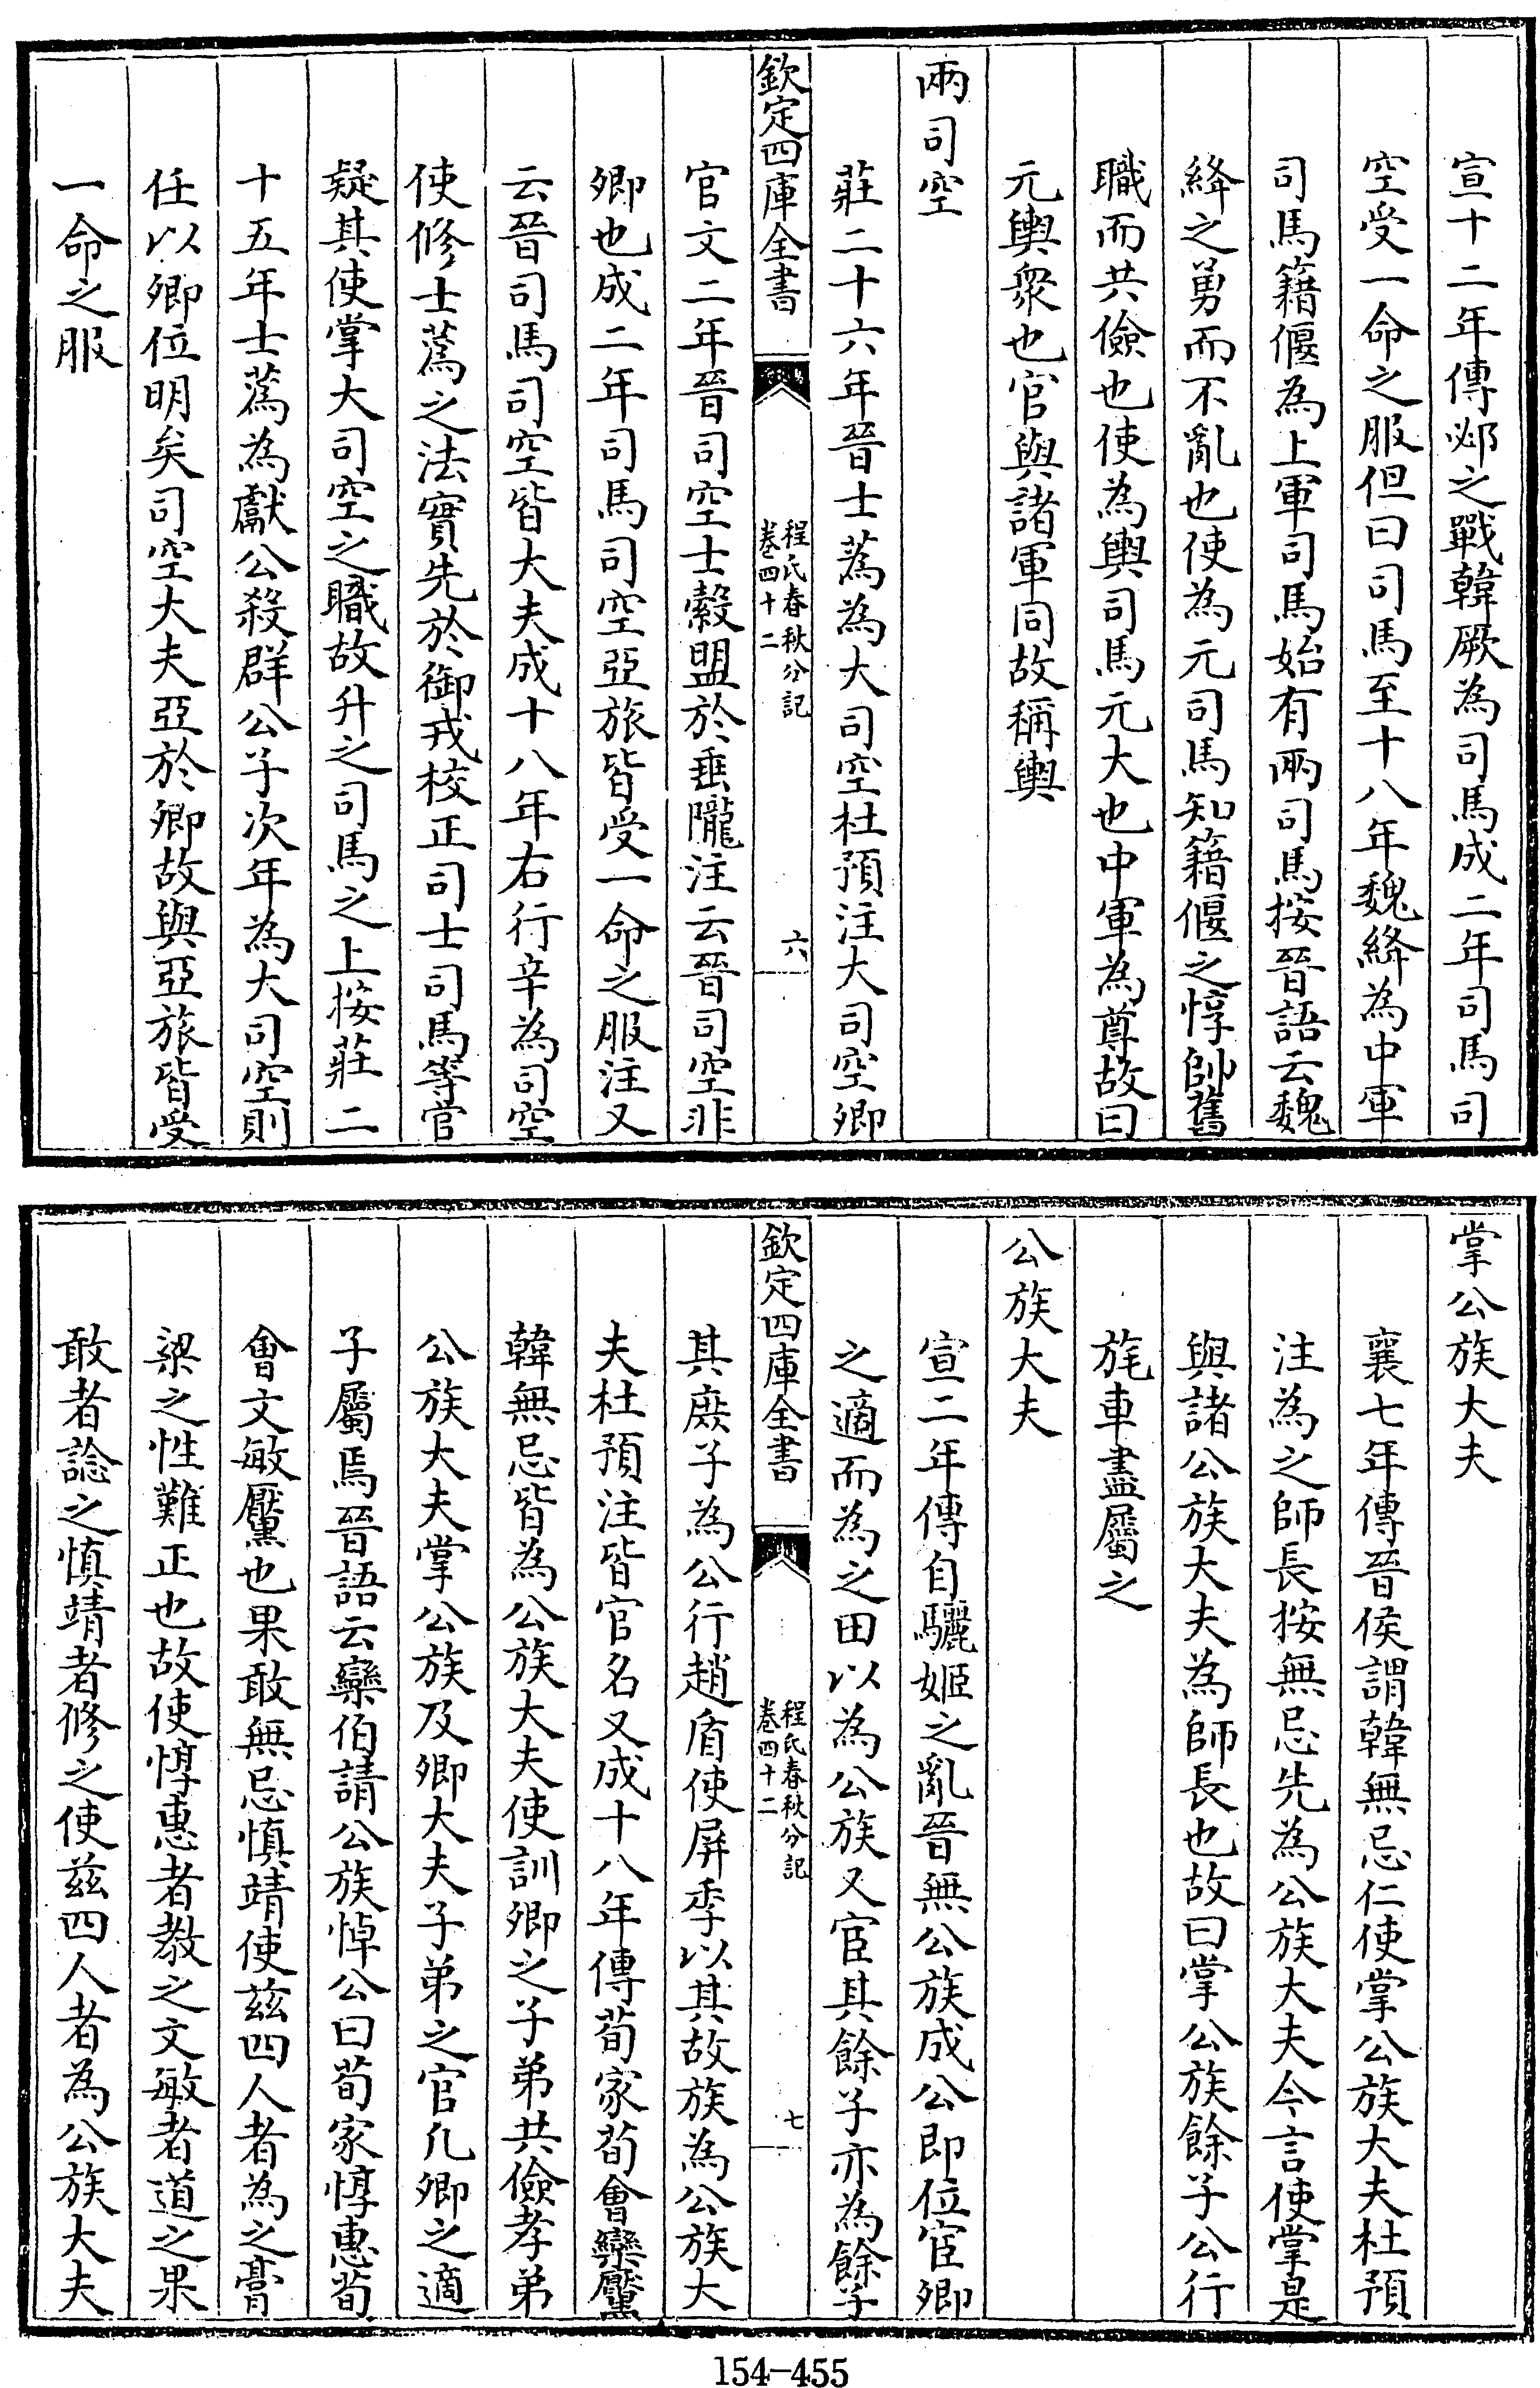 宣十二年傳邲之戰韓厥為司馬成二年司馬司
空受一命之服但曰司馬至十八年魏絳為中軍
司馬籍偃為上軍司馬始有兩司馬按晉語云魏
絳之勇而不亂也使為元司馬知籍偃之惇帥舊
職而共儉也使為輿司馬元大也中軍為尊故曰
元輿衆也官與諸軍同故稱輿
兩司空
莊二十六年晉士蒍為大司空杜預注大司空卿
欽定四庫全書
程氏春秋分記
卷四十二
六
官文二年晉司空士縠盟於垂隴注云晉司空非
卿也成二年司馬司空亞旅皆受一命之服注又
云晉司馬司空皆大夫成十八年右行辛為司空
使修士蒍之法實先於御戎校正司士司馬等官
疑其使掌大司空之職故升之司馬之上按莊二
十五年士蒍為獻公殺群公子次年為大司空則
任以卿位明矣司空大夫亞於卿故與亞旅皆受
一命之服
掌公族大夫
襄七年傳晉侯謂韓無忌仁使掌公族大夫杜預
注為之師長按無忌先為公族大夫今言使掌是
與諸公族大夫為師長也故曰掌公族餘子公行
旄車盡屬之
公族大夫
宣二年傳自驪姬之亂晉無公族成公即位宦卿
之適而為之田以為公族又宦其餘子亦為餘子
欽定四庫全書
程氏春秋分記
卷四十二
七
其庶子為公行趙盾使屏季以其故族為公族大
夫杜預注皆官名又成十八年傳荀家荀會欒黶
韓無忌皆為公族大夫使訓卿之子弟共儉孝弟
公族大夫掌公族及卿大夫子弟之官凡卿之適
子屬焉晉語云欒伯請公族悼公曰荀家惇惠荀
會文敏黶也果敢無忌慎靖使兹四人者為之膏
梁之性難正也故使惇惠者教之文敏者道之果
敢者諗之慎靖者修之使兹四人者為公族大夫
154-455